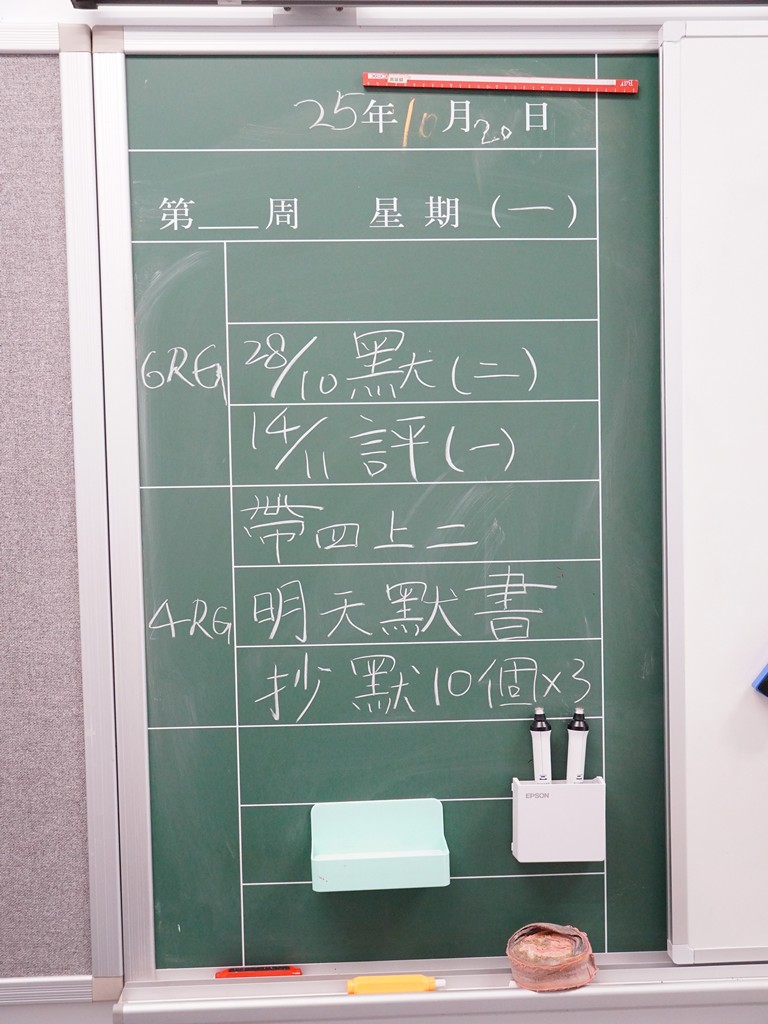 25年10月20日
第___周 星期(一)
6RG
28/10 默(二)
14/11 評(一)
4RG
帶四上二
明天默書
抄默10個x3
EPSON